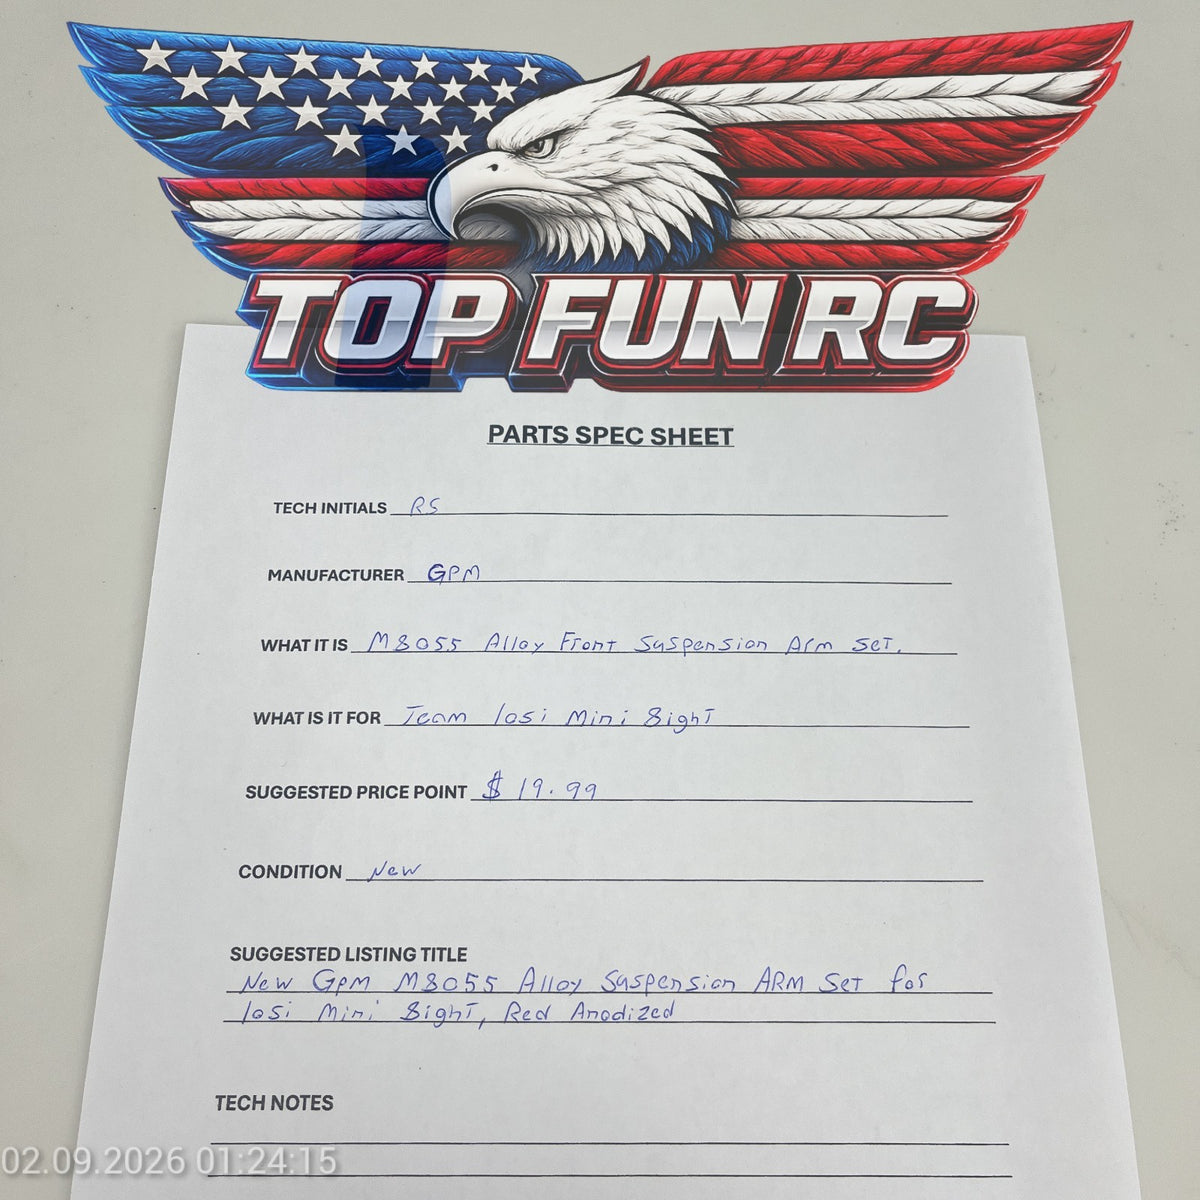 TOP FUN RC
PARTS SPEC SHEET
TECH INITIALS RS
MANUFACTURER GPM
WHAT IT IS M8055 Alloy Front Suspension Arm Set.
WHAT IS IT FOR Team losi Mini 8ighT
SUGGESTED PRICE POINT $ 19.99
CONDITION New
SUGGESTED LISTING TITLE
New Gpm M8055 Alloy Suspension ARM Set for
losi Mini 8ighT, Red Anodized
TECH NOTES
02.09.2026 01:24:15